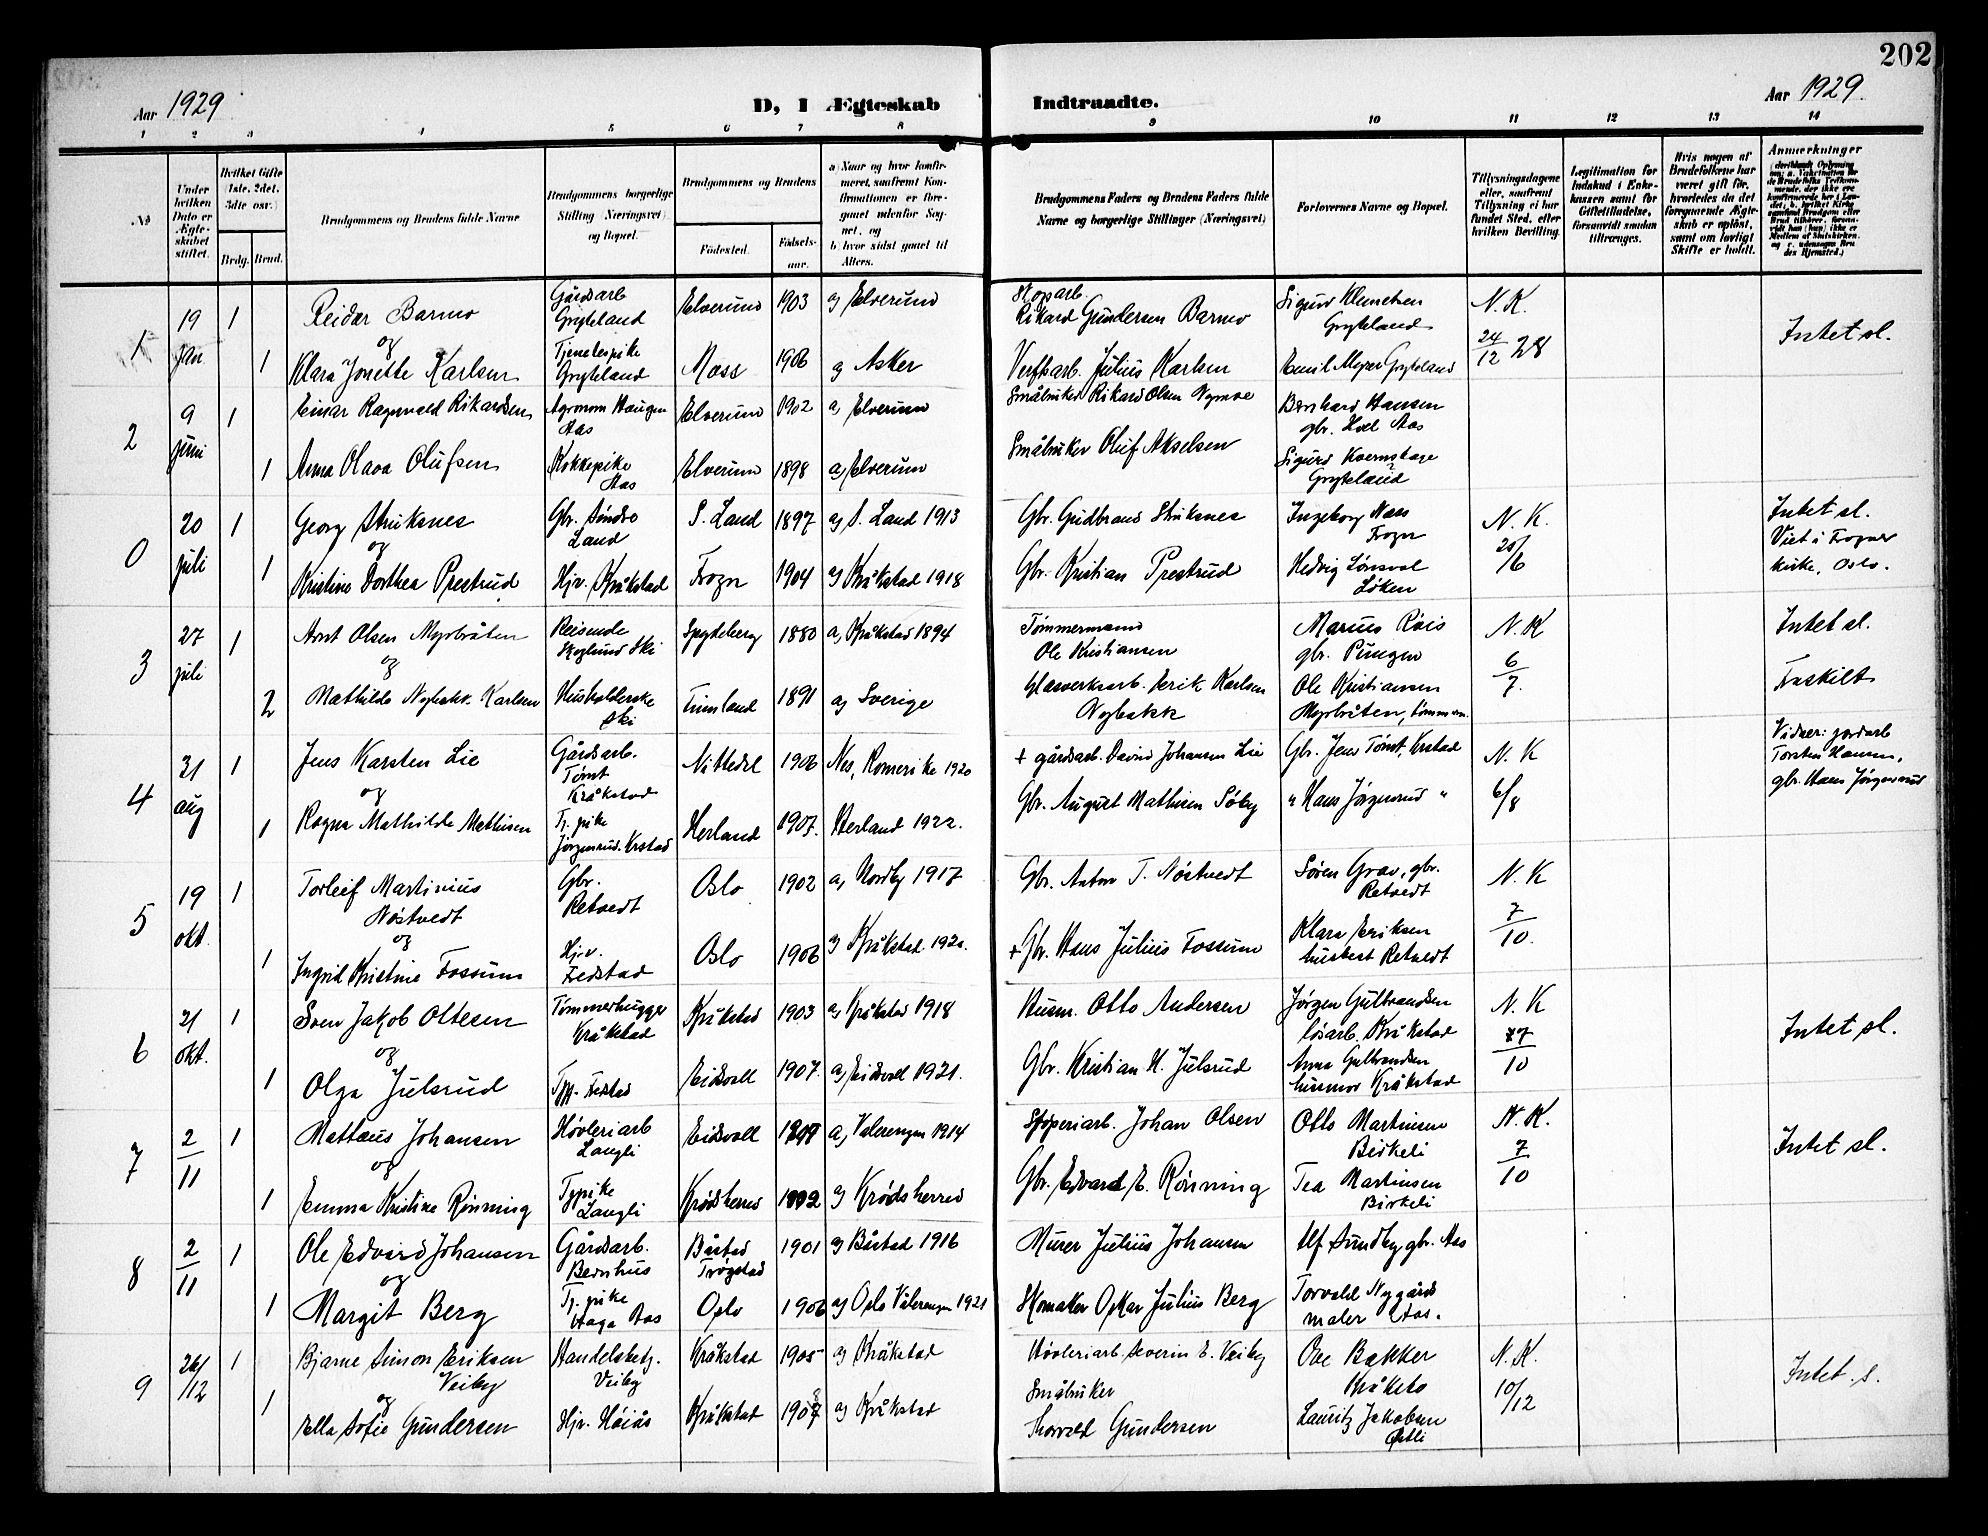 202
Aar 1929
D, I Ægteskab
Indtraadte.
Aar 1929.
1 2 3 4 5 6 7 8 9 10 11 12 13 14
No
Under hvilken Dato er Ægteskabet stiftet.
Hvilket Gifte (1ste, 2det, 3dte osv.)
Brdg. Brud.
Brudgommens og Brudens fulde Navne
Brudgommens borgerlige Stilling (Næringsvei) og Bopæl.
Brudgommens og Brudens
Fødested.
Fødselsaar.
a) Naar og hvor konfirmeret, saafremt Konfirmationen er foregaaet udenfor Sognet, og
b) hvor sidst gaaet til Alters.
Brudgommens Faders og Brudens Faders fulde Navne og borgerlige Stillinger (Næringsvei)
Forlovernes Navne og Bopæl.
Tillysningsdagene eller, saafremt Tillysning ei har fundet Sted, efter hvilken Bevilling.
Legitimation for Indskud i Enkekassen samt for Giftetilladelse, forsaavidt saadan tiltrænges.
Hvis nogen af Brudefolkene har været gift før, hvorledes da det foregaaende Ægteskab er opløst, samt om lovligt Skifte er holdt.
Anmerkninger
1
19 jan
1
Reidar Barmo
Gårdsarb Gryteland
Elverum
1903
a) Elverum
Stoparb. Rikard Gundersen Barmo
Sigurd Klemetsen Gryteland
N. K.
24/12 28
Intet sl.
og
1
Klara Jonette Karlsen
Tjenetespike Gryteland
Moss
1906
a) Asker
Verftsarb. Julius Karlsen
Emil Meyer Gryteland
2
9 juni
1
Einar Ragnvald Rikardsen
Agronom Haugen Aas
Elverum
1902
a) Elverum
Småbruker Rikard Olsen Nymoe
Bernhard Hansen gbr. Hoel Aas
1
Anna Olava Olufsen
Kokkepike Aas
Elverum
1898
a) Elverum
Småbruker Oluf Akselsen
Sigurd Kvernshage Gryteland
0
20 juli
1
Georg Struksnes
Gbr. Søndre Land
S. Land
1897
a) S. Land 1913
Gbr. Gudbrand Struksnes
Ingeborg Næss Frogn
N. K.
20/6
Intet sl.
Viet i Frogner
kirke, Oslo.
og
1
Kristine Dorthea Prestrud
Hjv. Kråkstad
Frogn
1904
a) Kråkstad 1918
Gbr. Kristian Prestrud
Hedvig Lønsval Løken
3
27 juli
1
Arnt Olsen Myrbråten
Reisende Skoglund Ski
Spydeberg
1880
a) Kråkstad 1894
Tømmermand Ole Kristiansen
Marius Røis gbr. Pungen
N. K
6/7.
Intet sl.
Fraskilt
og
2
Mathilde Nybakk. Karlsen
Husholderske Ski
Finnland
1891
a) Sverige
Glasverksarb. Erik Karlsen Nybakk
Ole Kristiansen Myrbråten, tømmerm.
4
31 aug
1
Jens Karsten Lie
Gårdsarb. Tømt Kråkstad
Nittedal
1906
Nes, Romerike 1920
+ gårdsarb. David Johansen Lie
Gbr. Jens Tømt, Krstad
N. K
6/8
Vidner: jordarb
Torsten Hansen,
gbr. Hans Jørgensrud
og
1
Ragna Mathilde Mathisen
Tj. pike Jørgensrud. Krstad
Herland
1907.
Herland 1922.
Gbr. August Mathisen Søby
" Hans Jørgensrud "
5
19 okt.
1
Torleif Martinius Nøstvedt
Gbr. Retvedt
Oslo
1902
a) Nordby 1917
Gbr. Anton T. Nøstvedt
Søren Grav, gbr. Retvedt
N. K
7/10.
og
1
Ingrid Kristine Fossum
Hjv. Fedstad
Oslo
1906
a) Kråkstad 1920.
+ Gbr. Hans Julius Fossum
Klara Eriksen husbest Retvedt
6
21 okt.
1
Sven Jakob Ottesen
Tømmerhugger Kråkstad
Kråkstad
1903
a) Kråkstad 1918
Husm. Otto Andersen
Jørgen Gulbrandsen løsarb. Kråkstad
N. K
/10
Intet sl.
og
1
Olga Julsrud
Tjp. Fedstad
Eidsvoll
1907.
a) Eidsvoll 1921.
Gbr. Kristian H. Julsrud
Anna Gulbrandsen husmor Kråkstad
7
2/11
1
Mattæus Johansen
Høvleriarb Langli
Eidsvoll
a) Valerengen 1914
Støperiarb. Johan Olsen
Otto Martinsen Birkeli
N. K.
7/10
Intet sl.
og
1
Emma Kristine Rønning
Tjpike Langli
Krødsherred
a) Krødsherred
Gbr. Edvard E. Rønning
Tea Martinsen Birkeli
8
2/11
1
Ole Edvard Johansen
Gårdsarb. Bernhus
Båstad Trøgstad
1901
a) Båstad 1916
Murer Julius Johansen
Alf Sundby gbr. Aas
og
1
Margit Berg
Tj. pike Haga Aas
Oslo
1906
a) Oslo Vålerengen 1921
Skomaker Oskar Julius Berg
Torvald Nygård maler Aas.
9
26/12
1
Bjarne Simon Eriksen Veiby
Handelsbetj. Veiby
Kråkstad
1905
a) Kråkstad
Høvleriarb. Severin E. Veiby
Ove Bakker Kråksto
N. K.
10/12
Intet s.
og
1
Ella Sofie Gundersen
Hjv. Høiås
Kråkstad
1908
a) Kråkstad
Småbruker Thorvald Gundersen
Lauritz Jakobsen Østli